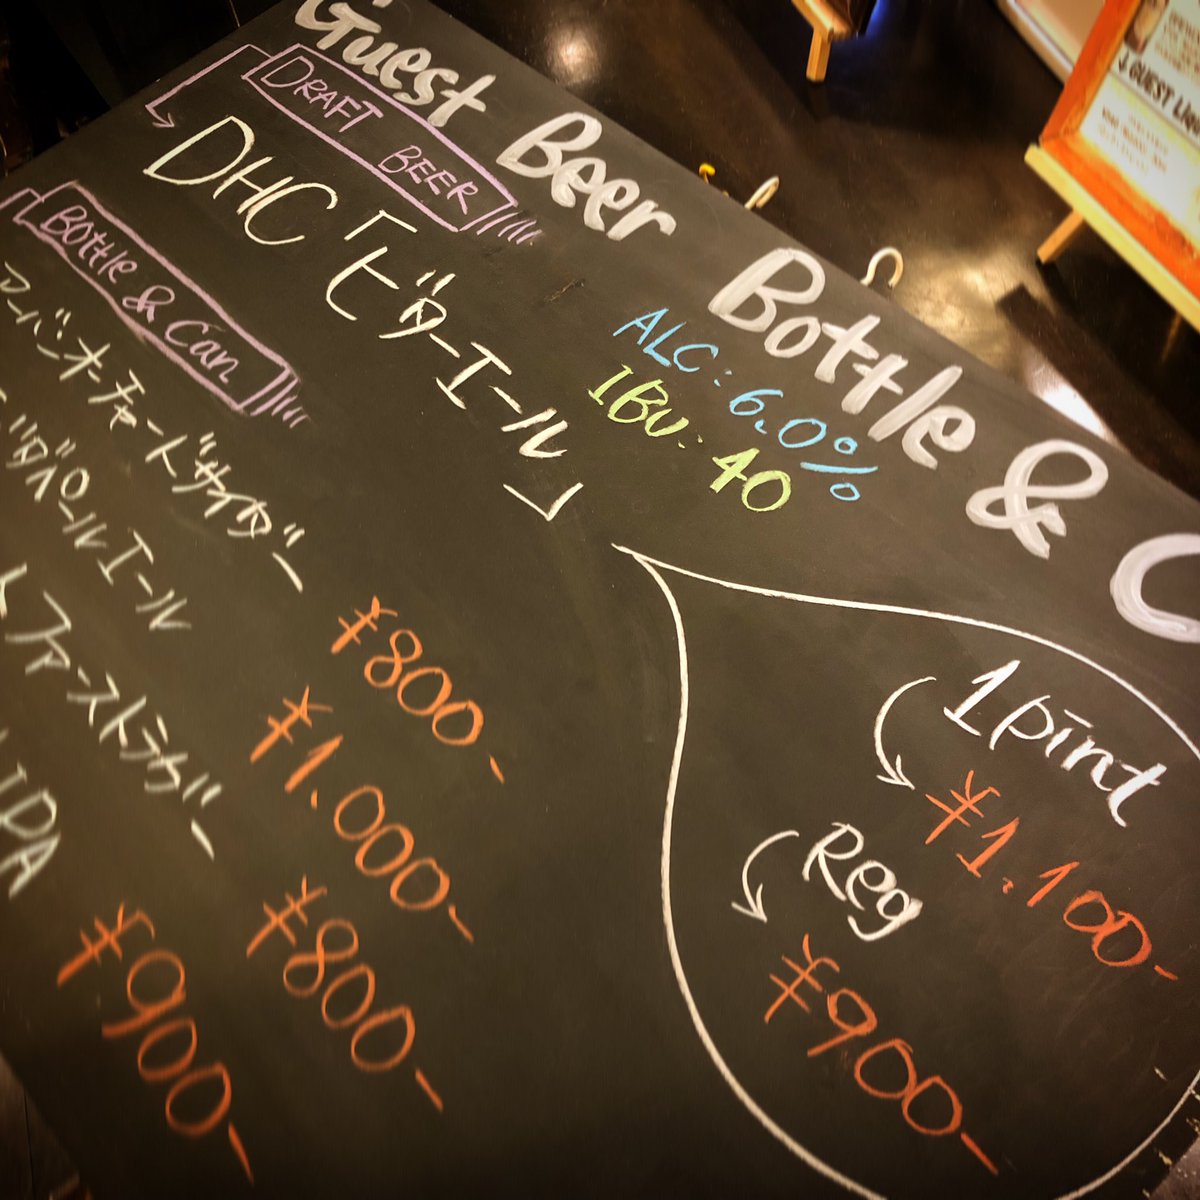 Guest Beer Bottle & C
DRAFT BEER
DHC「ビターエール」
ALC: 6.0%
IBU: 40
1pint
¥1.100-
Reg
¥900-
Bottle & Can
アーバンオーチャードサイダー
¥800-
ペールエール
¥1.000-
ファーストラガー
¥800-
IPA
¥900-
GUEST